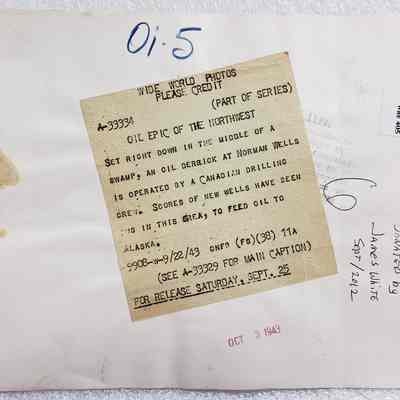 Oi-5
WIDE WORLD PHOTOS
PLEASE CREDIT
(PART OF SERIES)
A-33334
OIL EPIC OF THE NORTHWEST
SET RIGHT DOWN IN THE MIDDLE OF A
SWAMP, AN OIL DERRICK AT NORMAN WELLS
IS OPERATED BY A CANADIAN DRILLING
CREW. SCORES OF NEW WELLS HAVE BEEN
IN THIS AREA, TO FEED OIL TO
ALASKA.
9908-W-9/22/43 (38) 11A
(SEE A-33329 FOR MAIN CAPTION)
FOR RELEASE SATURDAY, SEPT. 25
OCT 3 1943
60
DONATED by
JAMES WHITE
SEPT/2012